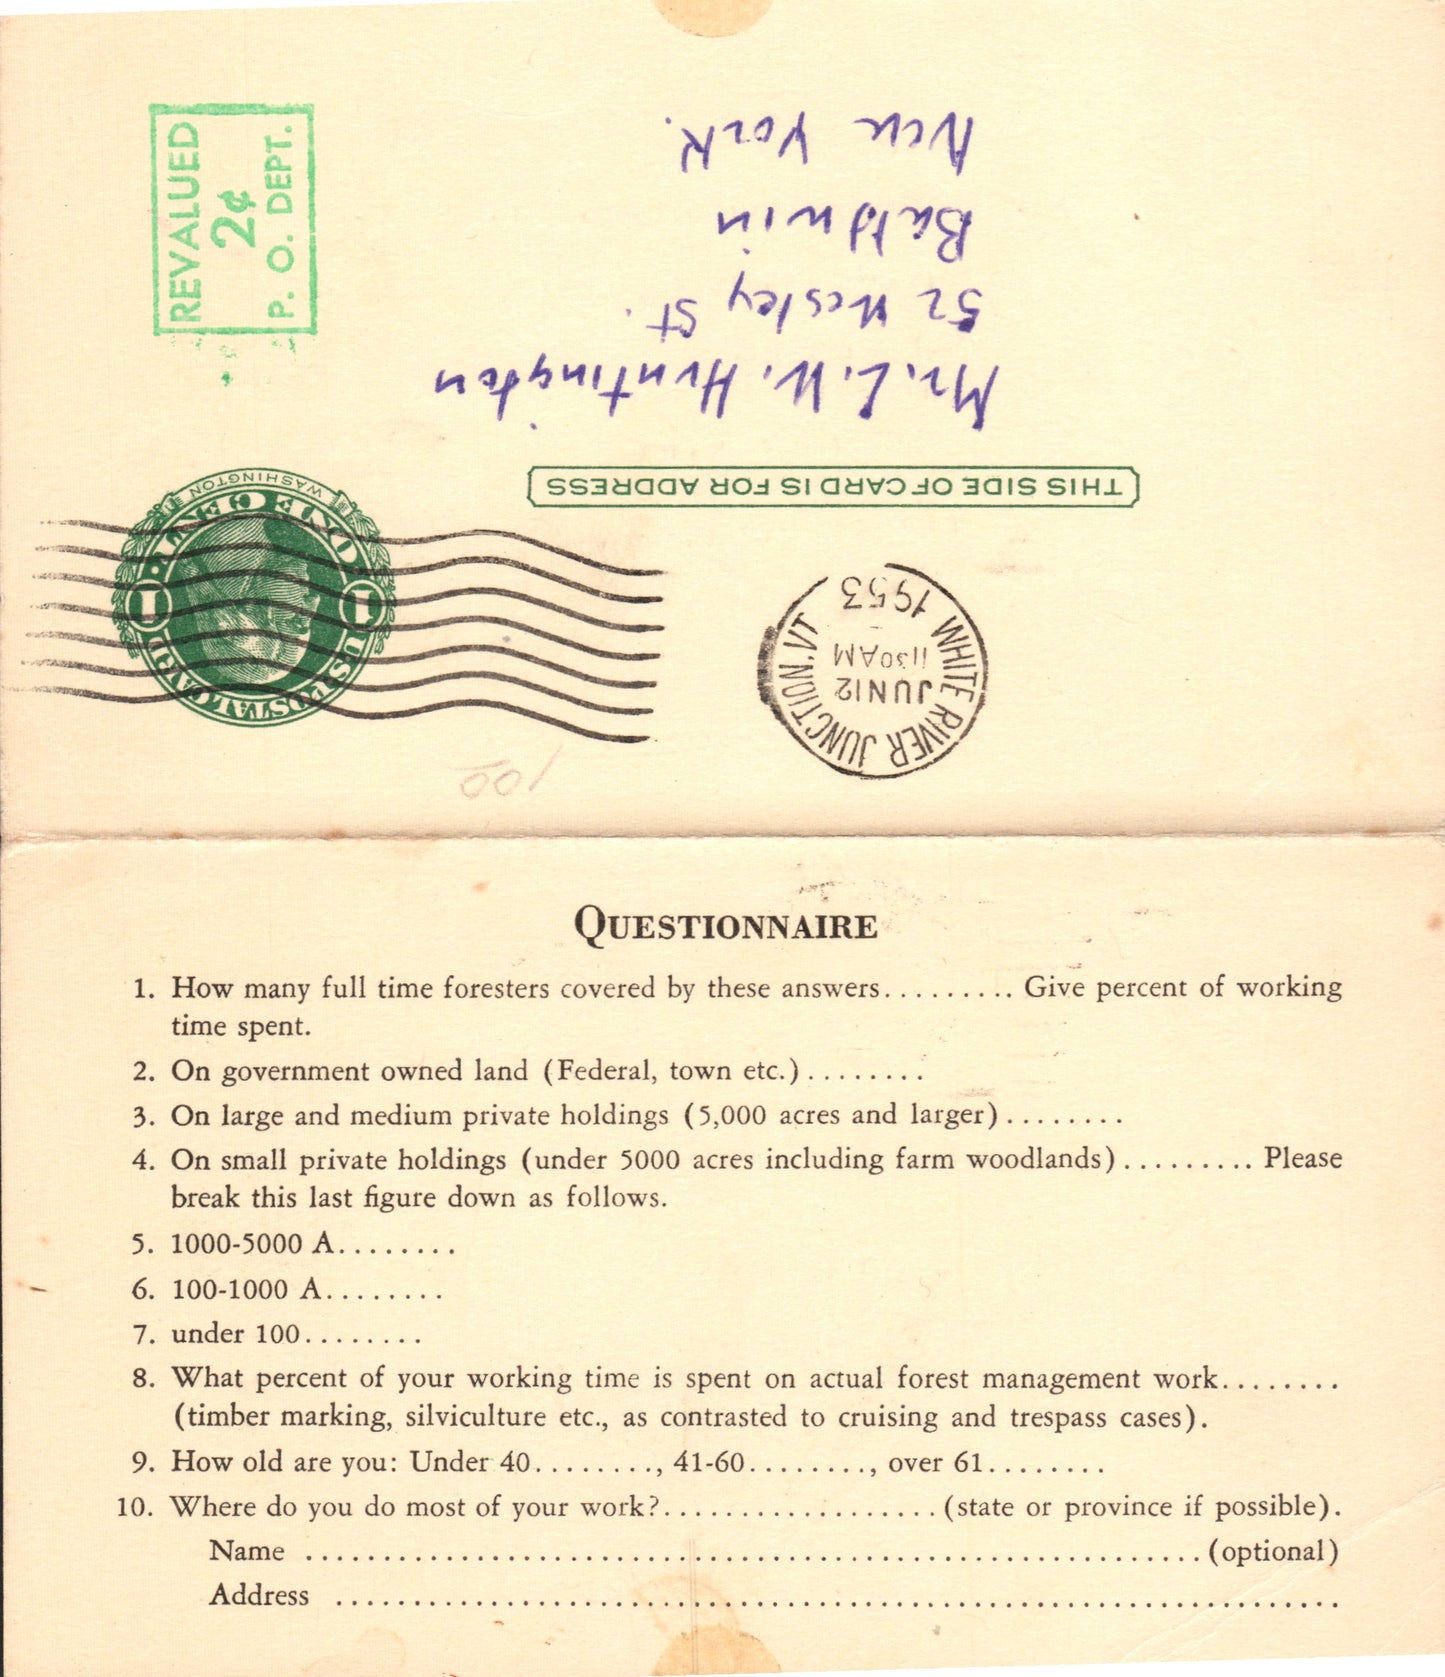 REVALUED
2¢
P. O. DEPT.
Mr. L. W. Huntington
52 Wesley St.
Baldwin
New York.
THIS SIDE OF CARD IS FOR ADDRESS
WASHINGTON
U.S. POSTAL CARD · ONE CENT ·
1 1
WHITE RIVER JUNCTION. VT
JUN 12
11 30 AM
1953
100
QUESTIONNAIRE
1. How many full time foresters covered by these answers......... Give percent of working
time spent.
2. On government owned land (Federal, town etc.)........
3. On large and medium private holdings (5,000 acres and larger)........
4. On small private holdings (under 5000 acres including farm woodlands)......... Please
break this last figure down as follows.
5. 1000-5000 A........
6. 100-1000 A........
7. under 100........
8. What percent of your working time is spent on actual forest management work........
(timber marking, silviculture etc., as contrasted to cruising and trespass cases).
9. How old are you: Under 40........, 41-60........, over 61........
10. Where do you do most of your work?..................(state or province if possible).
Name ..........................................................(optional)
Address .................................................................